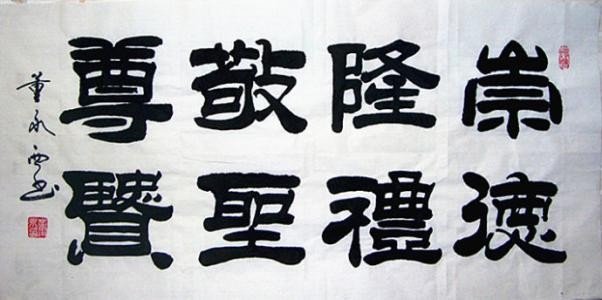 崇德
隆禮
敬聖
尊賢
董永西书